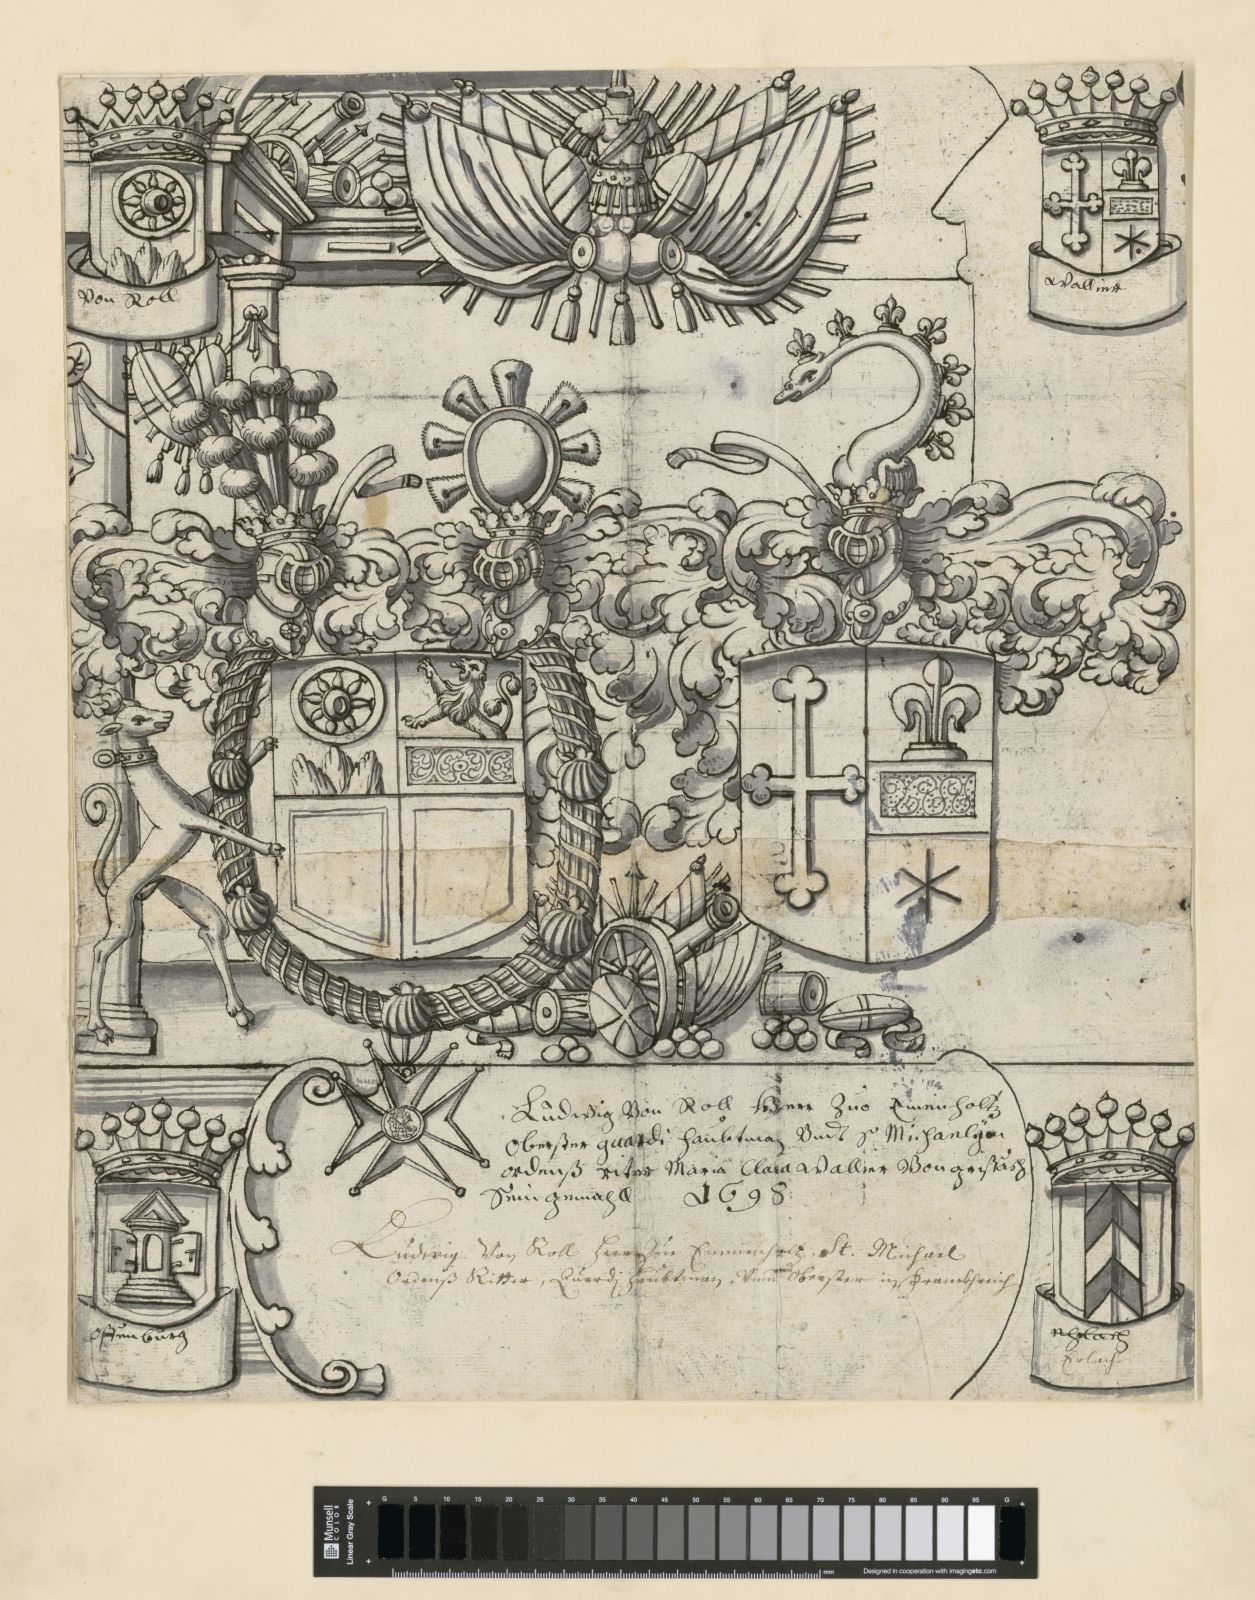 Von Roll
Wallier
Ludwig Von Roll Herr Zuo Emenholtz
Oberster guardi haubtman Vndt S Michaelys
ordenß riter Maria Clara Wallier Von
Sein gemahll 1698
Ludwig Von Roll Herr Zu Emmenholtz St. Michael
Ordenß Ritter, Guardj Haubtman, Vnd Oberster in Frankhreich
Offenburg
Erlach
Munsell
COLOR
Linear Gray Scale
G 5 10 15 20 25 30 35 40 45 50 55 60 65 70 75 80 85 90 95 G
mm Designed in cooperation with imagingetc.com